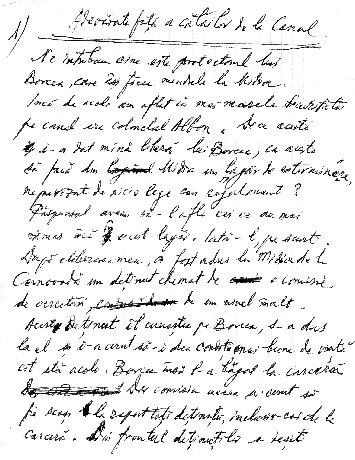 1) Adevărata față a călăilor de la Canal
Ne întrebam cine este protectorul lui
Borcea, care își făcea mendrele la Midia.
Încă de acolo am aflat că mai marele Securității
pe canal era colonelul Albon. Deci acesta
i-a dat mînă liberă lui Borcea, ca acesta
să facă din Midia un lagăr de exterminare,
neprevăzut de nicio lege sau regulament?
Răspunsul aveau să-l afle cei ce au mai
rămas încă în acest lagăr. Iată-l pe scurt.
După eliberarea mea, a fost adus la Midia de la
Constanță un deținut chemat de o comisie
de cercetări, de un nivel înalt.
Acest deținut îl cunoștea pe Borcea, s-a dus
la el și i-a cerut să-i dea condiții mai bune de viață
cît stă acolo. Borcea însă l-a băgat la carceră
Dar comisia aceea a cerut să
fie scoși la raport toți deținuții, inclusiv cei de la
carceră. Din frontul deținuților a ieșit